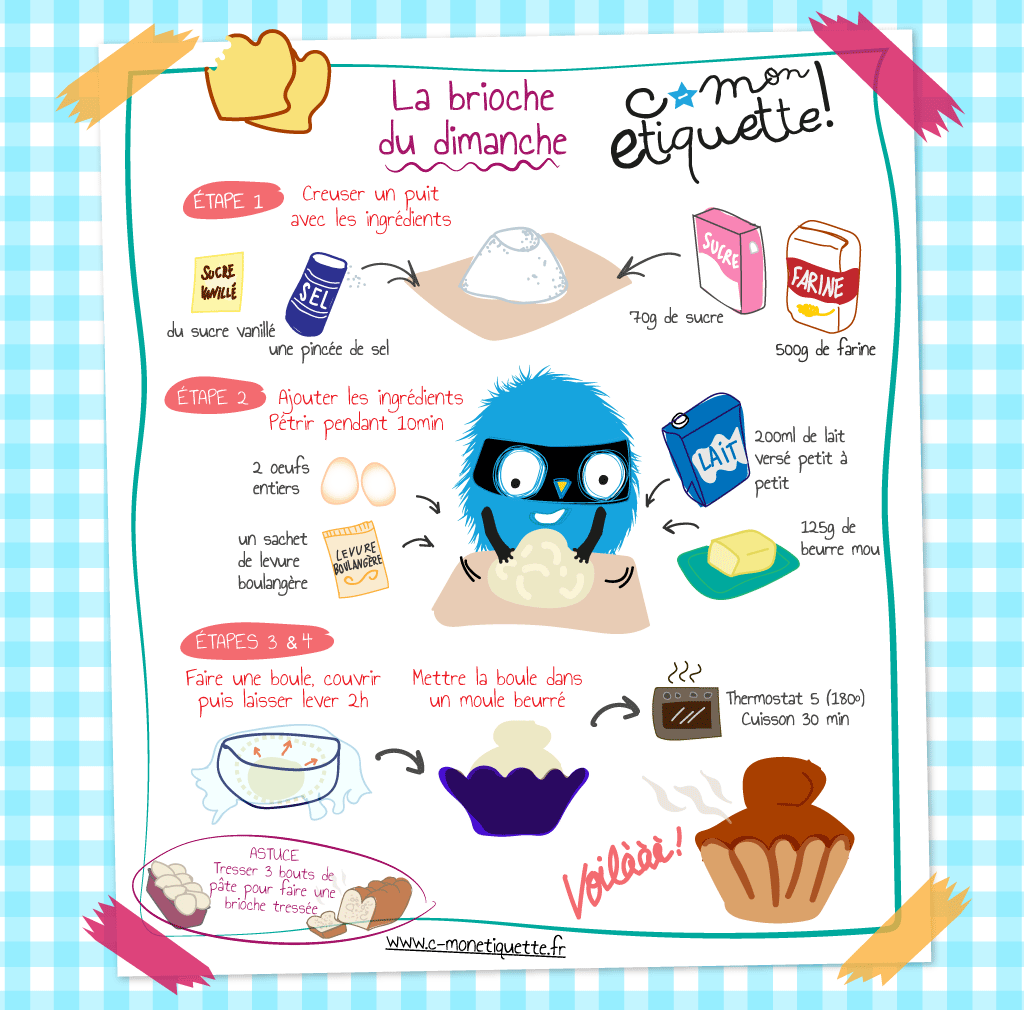 La brioche
du dimanche
c mon
etiquette!
ÉTAPE 1
Creuser un puit
avec les ingrédients
SUCRE
VANILLÉ
SEL
SUCRE
FARINE
du sucre vanillé
une pincée de sel
70g de sucre
500g de farine
ÉTAPE 2
Ajouter les ingrédients
Pétrir pendant 10min
2 oeufs
entiers
un sachet
de levure
boulangère
LEVURE
BOULANGÈRE
LAIT
200ml de lait
versé petit à
petit
125g de
beurre mou
ÉTAPES 3 & 4
Faire une boule, couvrir
puis laisser lever 2h
Mettre la boule dans
un moule beurré
Thermostat 5 (180º)
Cuisson 30 min
Voilààà!
ASTUCE
Tresser 3 bouts de
pâte pour faire une
brioche tressée
www.c-monetiquette.fr